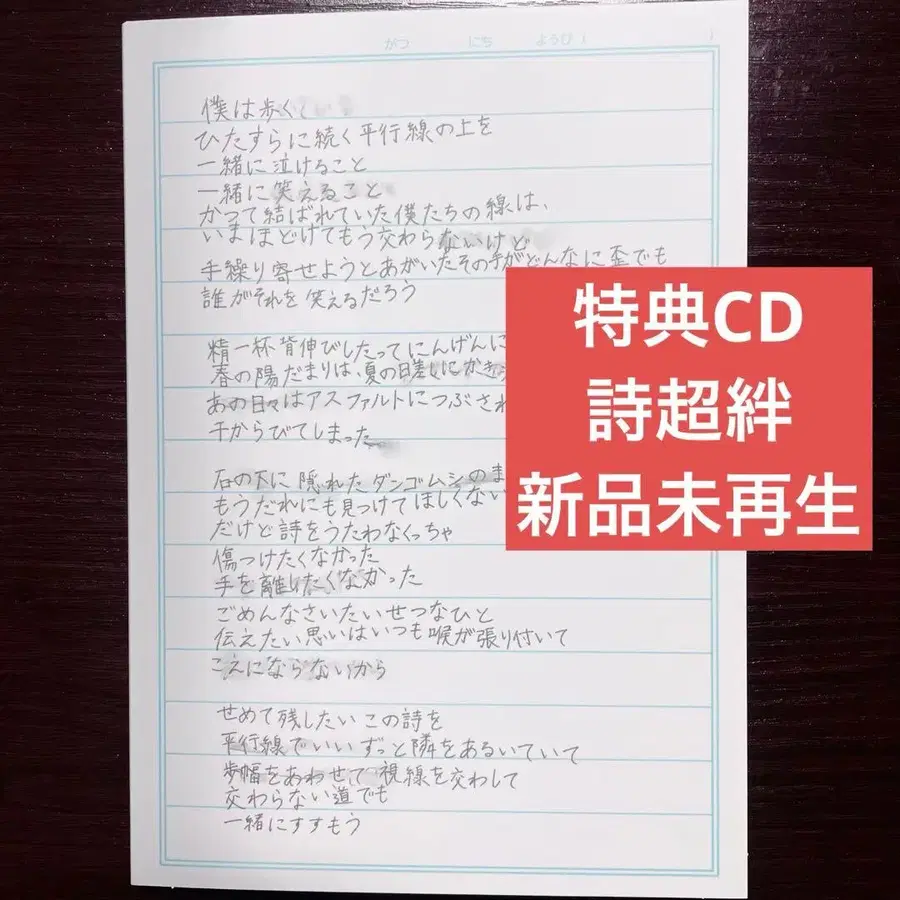 がつ にち ようび ( )
僕は歩く
ひたすらに続く平行線の上を
一緒に泣けること
一緒に笑えること
かつて結ばれていた僕たちの線は、
いまほどけてもう交わらないけど
手繰り寄せようとあがいたその手がどんなに歪でも
誰がそれを笑えるだろう
精一杯背伸びしたってにんげんに
春の陽だまりは、夏の日差しにかき
あの日々はアスファルトにつぶされ
干からびてしまった
石の下に隠れたダンゴムシのま
もうだれにも見つけてほしくない
だけど詩をうたわなくっちゃ
傷つけたくなかった
手を離したくなかった
ごめんなさいたいせつなひと
伝えたい思いはいつも喉が張り付いて
こえにならないから
せめて残したいこの詩を
平行線でいいずっと隣をあるいていて
歩幅をあわせて視線を交わして
交わらない道でも
一緒にすすもう
特典CD
詩超絆
新品未再生